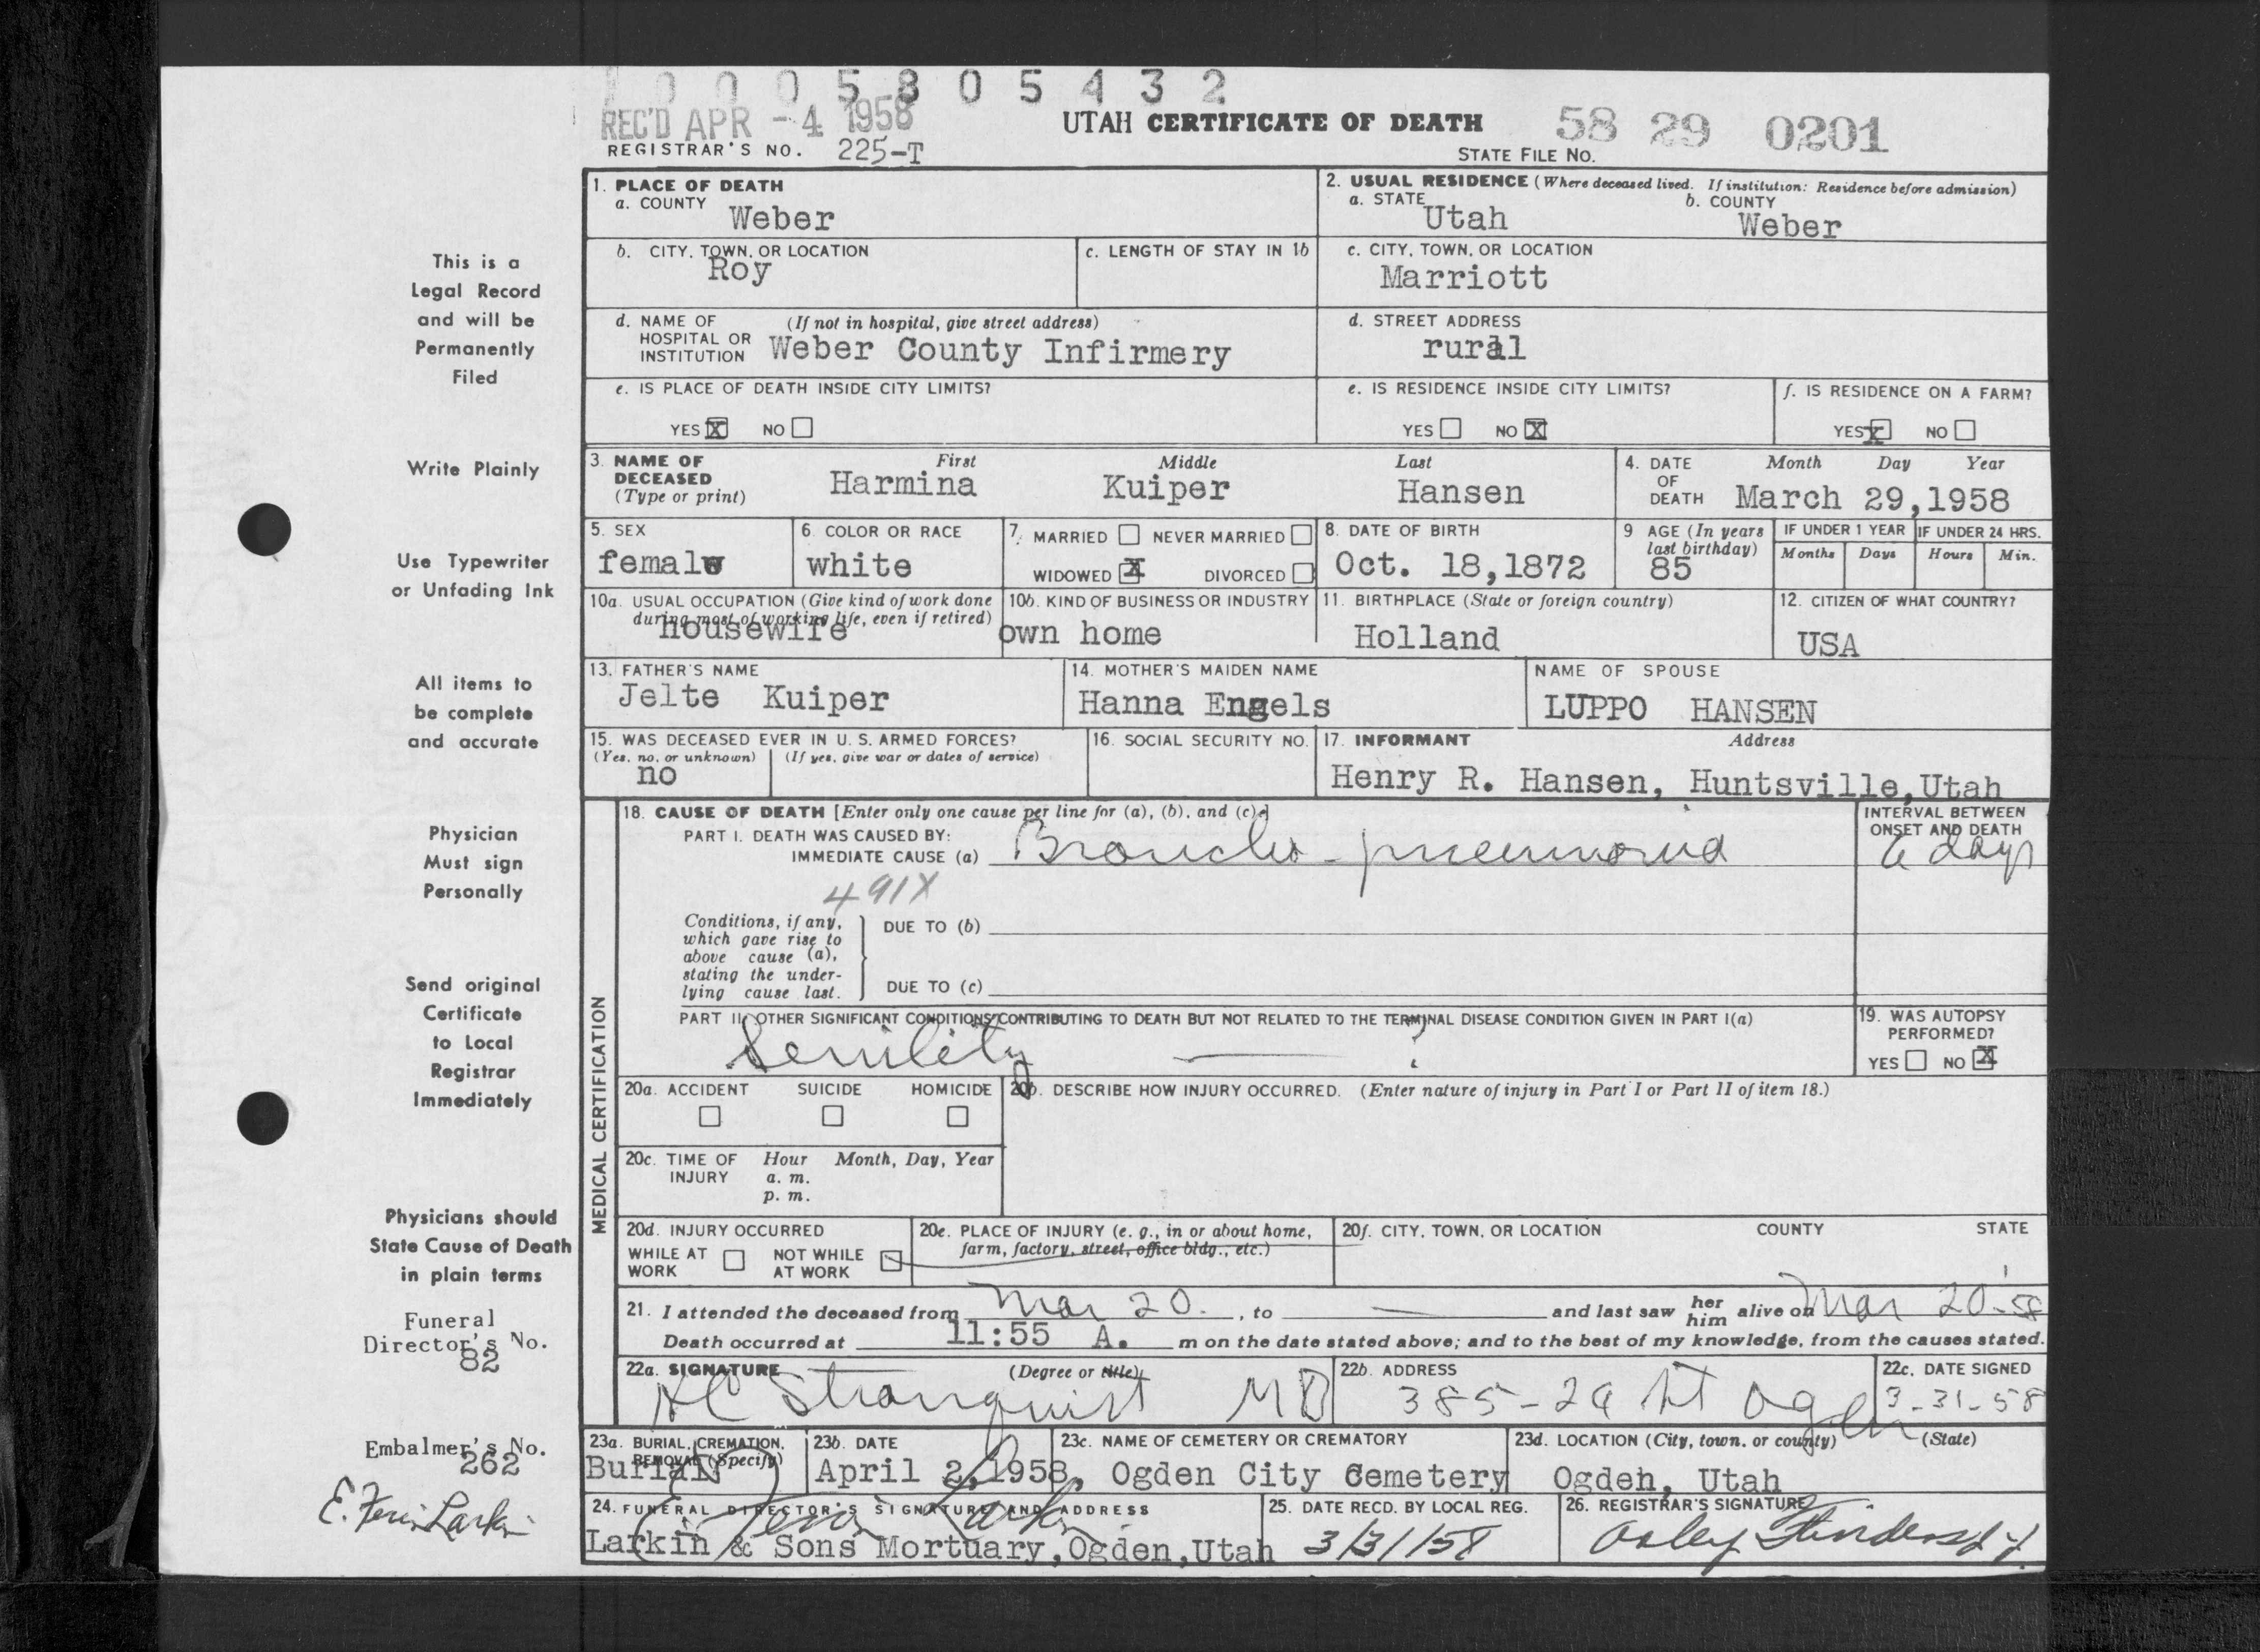 1 0 0 0 5 8 0 5 4 3 2
REC'D APR - 4 1958
UTAH CERTIFICATE OF DEATH
58 29 0201
REGISTRAR'S NO. 225-T
STATE FILE No.
This is a
Legal Record
and will be
Permanently
Filed
Write Plainly
Use Typewriter
or Unfading Ink
All items to
be complete
and accurate
Physician
Must sign
Personally
Send original
Certificate
to Local
Registrar
Immediately
Physicians should
State Cause of Death
in plain terms
Funeral
Director's No.
82
Embalmer's No.
262
E. Ferin Larkin
1. PLACE OF DEATH
a. COUNTY
Weber
2. USUAL RESIDENCE (Where deceased lived. If institution: Residence before admission)
a. STATE
Utah
b. COUNTY
Weber
b. CITY, TOWN, OR LOCATION
Roy
c. LENGTH OF STAY IN 1b
c. CITY, TOWN, OR LOCATION
Marriott
d. NAME OF (If not in hospital, give street address)
HOSPITAL OR
INSTITUTION
Weber County Infirmery
d. STREET ADDRESS
rural
e. IS PLACE OF DEATH INSIDE CITY LIMITS?
YES X NO
e. IS RESIDENCE INSIDE CITY LIMITS?
YES NO X
f. IS RESIDENCE ON A FARM?
YES X NO
3. NAME OF
DECEASED
(Type or print)
First Middle Last
Harmina Kuiper Hansen
4. DATE
OF
DEATH
Month Day Year
March 29,1958
5. SEX
female
6. COLOR OR RACE
white
7. MARRIED NEVER MARRIED
WIDOWED X DIVORCED
8. DATE OF BIRTH
Oct. 18,1872
9 AGE (In years
last birthday)
85
IF UNDER 1 YEAR
Months Days
IF UNDER 24 HRS.
Hours Min.
10a. USUAL OCCUPATION (Give kind of work done
during most of working life, even if retired)
housewife
10b. KIND OF BUSINESS OR INDUSTRY
own home
11. BIRTHPLACE (State or foreign country)
Holland
12. CITIZEN OF WHAT COUNTRY?
USA
13. FATHER'S NAME
Jelte Kuiper
14. MOTHER'S MAIDEN NAME
Hanna Engels
NAME OF SPOUSE
LUPPO HANSEN
15. WAS DECEASED EVER IN U. S. ARMED FORCES?
(Yes, no, or unknown) (If yes, give war or dates of service)
no
16. SOCIAL SECURITY NO.
17. INFORMANT Address
Henry R. Hansen, Huntsville,Utah
MEDICAL CERTIFICATION
18. CAUSE OF DEATH [Enter only one cause per line for (a), (b), and (c).]
PART I. DEATH WAS CAUSED BY:
IMMEDIATE CAUSE (a) Broncho-pneumonia
INTERVAL BETWEEN
ONSET AND DEATH
6 days
491X
Conditions, if any,
which gave rise to
above cause (a),
stating the under-
lying cause last.
DUE TO (b)
DUE TO (c)
PART II. OTHER SIGNIFICANT CONDITIONS CONTRIBUTING TO DEATH BUT NOT RELATED TO THE TERMINAL DISEASE CONDITION GIVEN IN PART I(a)
Senility — ?
19. WAS AUTOPSY
PERFORMED?
YES NO X
20a. ACCIDENT SUICIDE HOMICIDE
20b. DESCRIBE HOW INJURY OCCURRED. (Enter nature of injury in Part I or Part II of item 18.)
20c. TIME OF
INJURY
Hour Month, Day, Year
a. m.
p. m.
20d. INJURY OCCURRED
WHILE AT
WORK
NOT WHILE
AT WORK
20e. PLACE OF INJURY (e. g., in or about home,
farm, factory, street, office bldg., etc.)
20f. CITY, TOWN, OR LOCATION COUNTY STATE
21. I attended the deceased from Mar 20. , to — and last saw her him alive on Mar 20-58
Death occurred at 11:55 A. m on the date stated above; and to the best of my knowledge, from the causes stated.
22a. SIGNATURE (Degree or title)
HC Stranquist MD
22b. ADDRESS
385-24 St Ogden
22c. DATE SIGNED
3-31-58
23a. BURIAL, CREMATION,
REMOVAL (Specify)
Burial
23b. DATE
April 2,1958
23c. NAME OF CEMETERY OR CREMATORY
Ogden City Cemetery
23d. LOCATION (City, town, or county) (State)
Ogden, Utah
24. FUNERAL DIRECTOR'S SIGNATURE AND ADDRESS
Larkin & Sons Mortuary,Ogden,Utah
25. DATE RECD. BY LOCAL REG.
3/31/58
26. REGISTRAR'S SIGNATURE